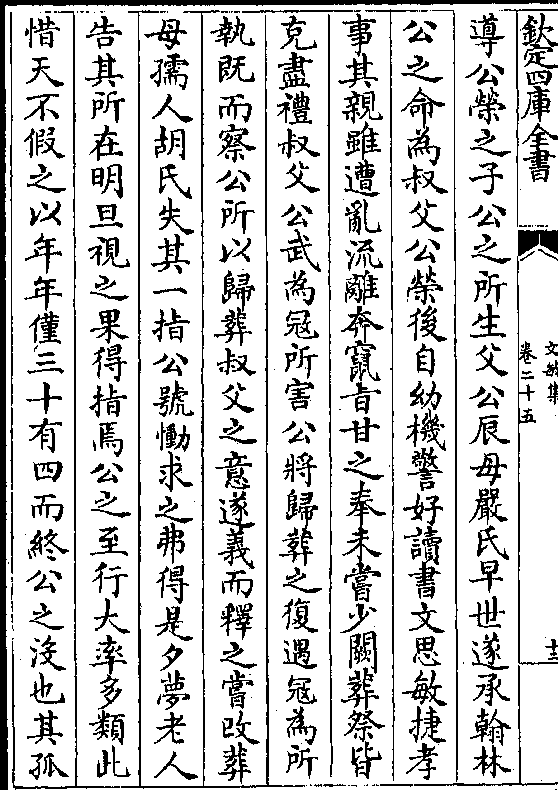 欽定四庫全書
文敏集
卷二十五
遵公榮之子公之所生父公辰母嚴氏早世遂承翰林
公之命為叔父公榮後自幼機警好讀書文思敏捷孝
事其親雖遭亂流離奔竄旨甘之奉未嘗少闕葬祭皆
克盡禮叔父公武為冦所害公將歸葬之復遇冦為所
執既而察公所以歸葬叔父之意遂義而釋之嘗改葬
母孺人胡氏失其一指公號慟求之弗得是夕夢老人
告其所在明旦視之果得指焉公之至行大率多類此
惜天不假之以年年僅三十有四而終公之沒也其孤